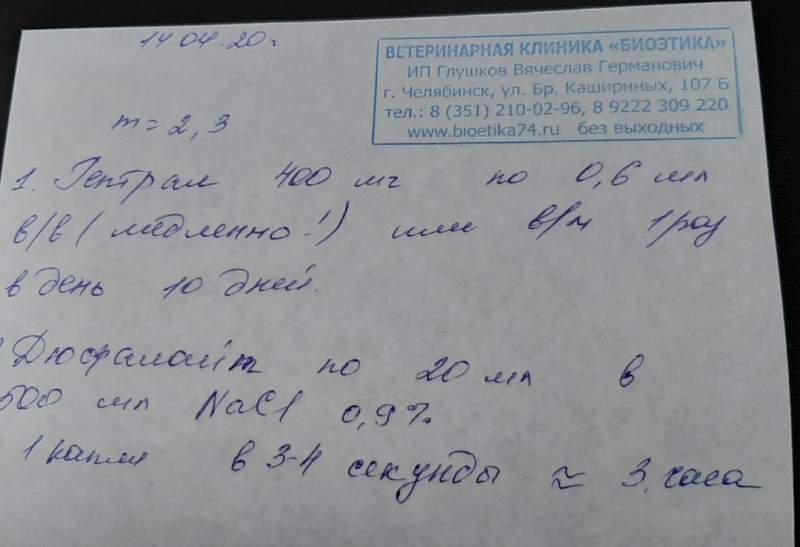 14.04.20г
ВЕТЕРИНАРНАЯ КЛИНИКА «БИОЭТИКА»
ИП Глушков Вячеслав Германович
г. Челябинск, ул. Бр. Кашириных, 107 Б
тел.: 8 (351) 210-02-96, 8 9222 309 220
www.bioetika74.ru без выходных
m = 2,3
1. Гептрал 400 мг по 0,6 мл
в/в (медленно!) или в/м 1 раз
в день 10 дней.
Дюфалайт по 20 мл в
500 мл NaCl 0,9%
1 капля в 3-4 секунды ≈ 3 часа